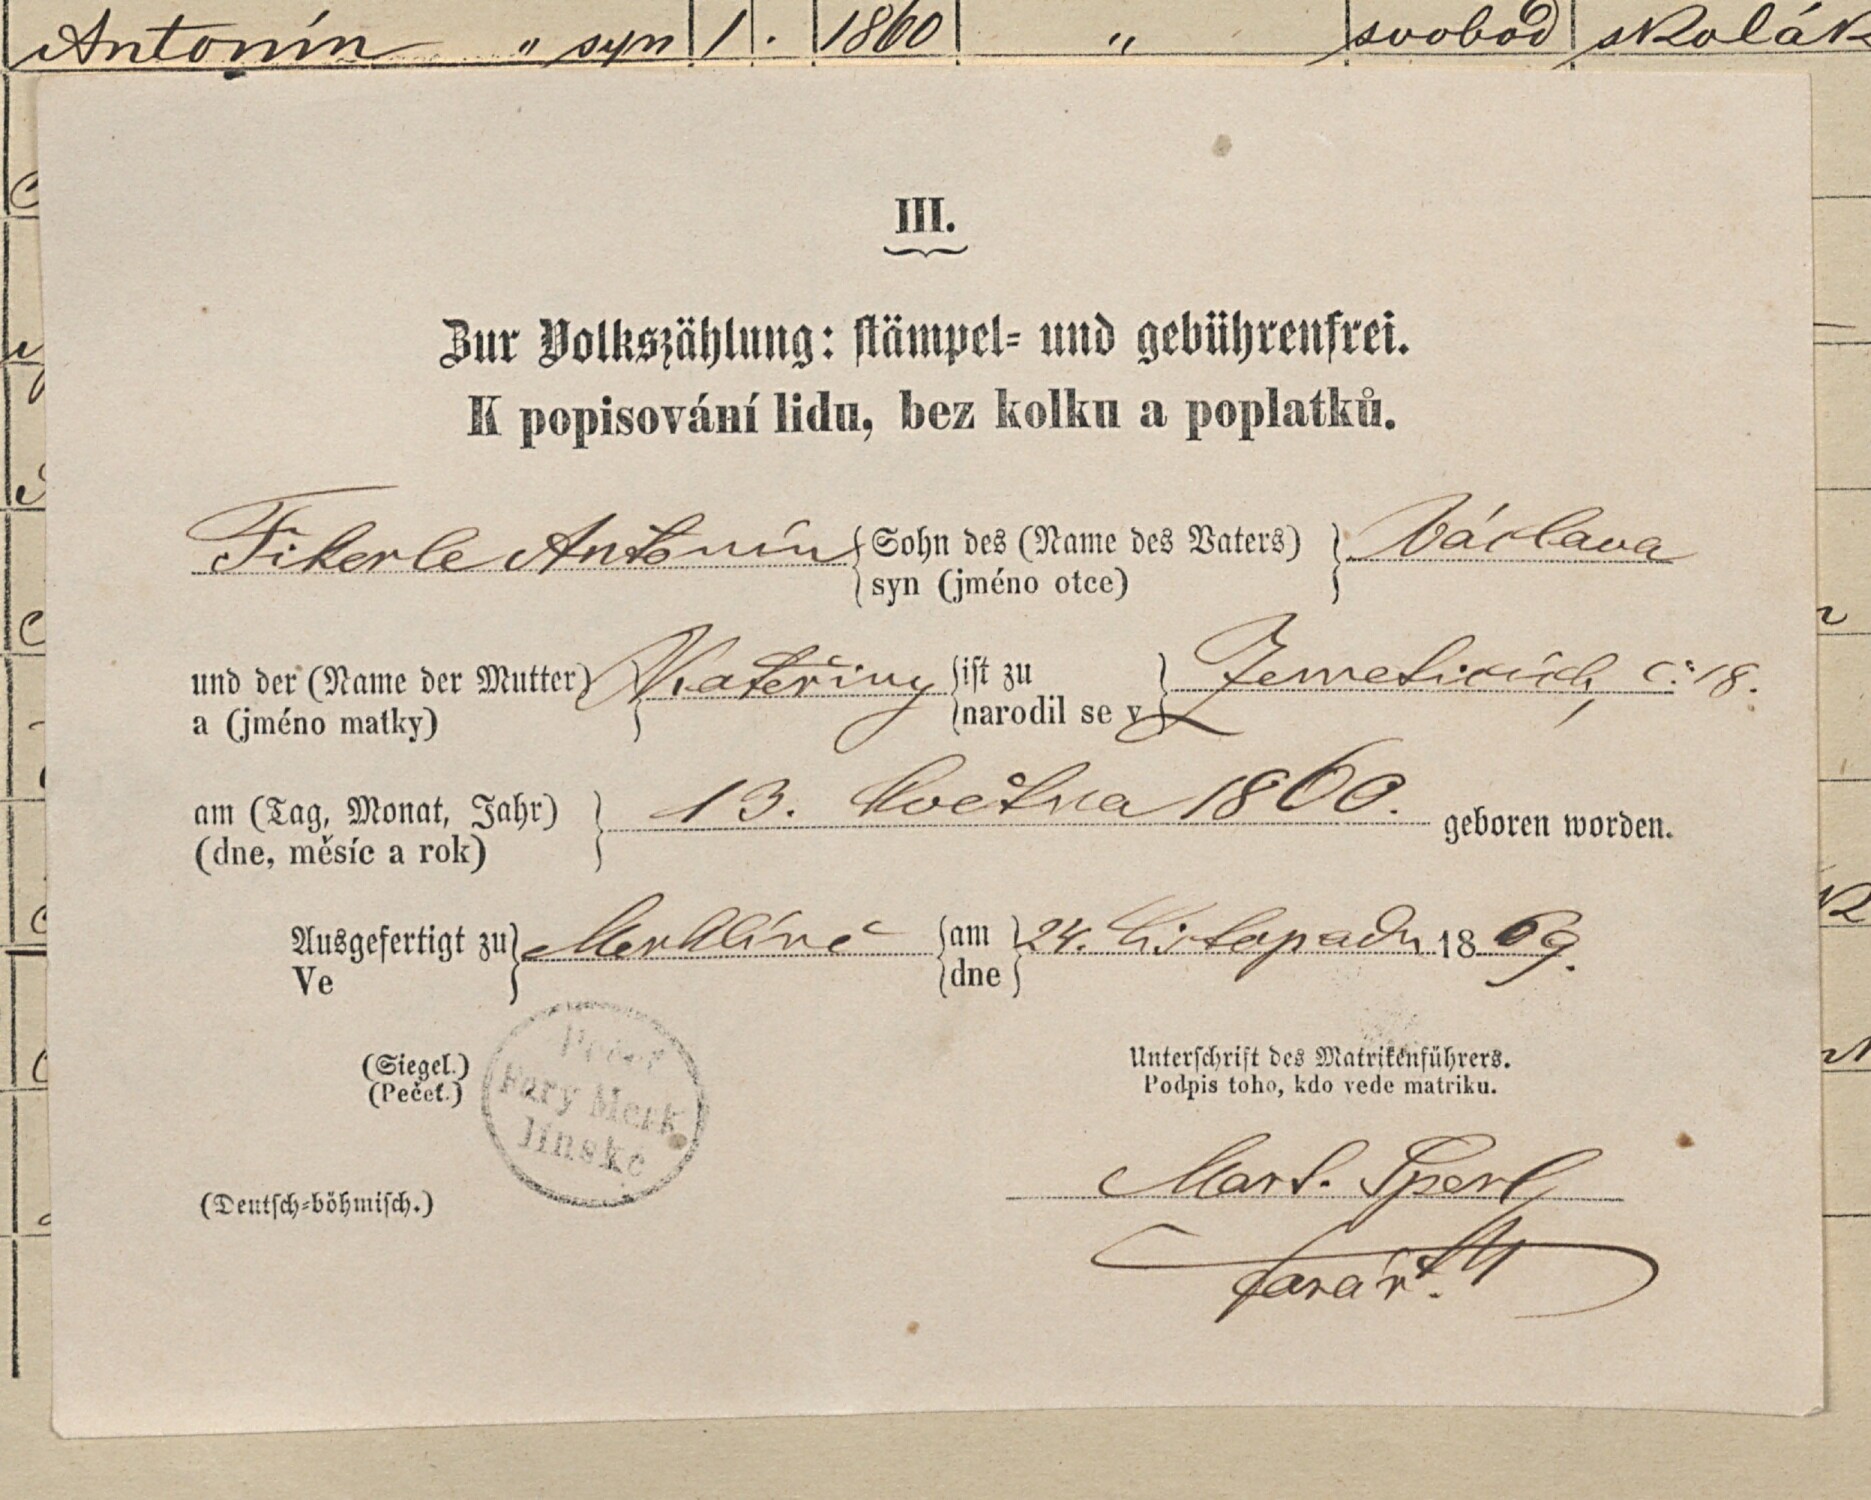 Antonín " syn 1. 1860 " svobod školák
III.
Zur Volkszählung: stämpel- und gebührenfrei.
K popisování lidu, bez kolku a poplatků.
Fikerle Antonín Sohn des (Name des Vaters) Václava
syn (jméno otce)
und der (Name der Mutter) Kateřiny ist zu Jemeticích, č: 18.
a (jméno matky) narodil se v
am (Tag, Monat, Jahr) 13. Května 1860. geboren worden.
(dne, měsíc a rok)
Ausgefertigt zu Merklíně am 24. Listopadu 1869.
Ve dne
(Siegel.)
(Pečeť.)
Pečeť
Fary Merk
línské
Unterschrift des Matrikenführers.
Podpis toho, kdo vede matriku.
Mart. Šperl
farář.
(Deutsch-böhmisch.)